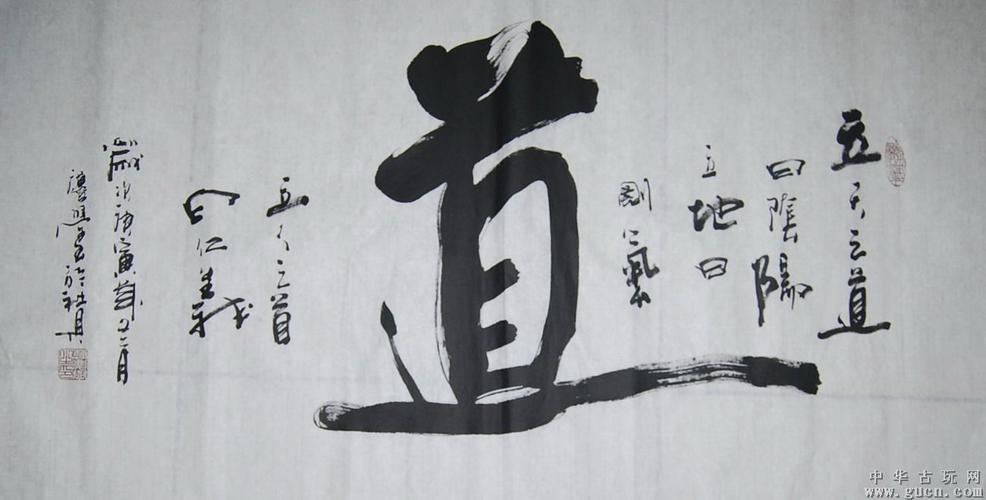 立天之道
曰陰陽
立地曰
剛氣
道
立人之道
曰仁義
歲次庚寅年 月
中华古玩网
www.gucn.com